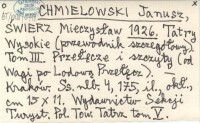 CHMIELOWSKI Janusz,
ŚWIERZ Mieczysław 1926. Tatry
Wysokie (przewodnik szczegółowy).
Tom III. Przełęcze i szczyty (od
Wagi po Lodową Przełęcz).
Kraków. Ss. nlb 4, 175, il., okł.,
cm 15 x 11. Wydawnictwo Sekcji
Turyst. Pol. Tow. Tatrz. tom V.